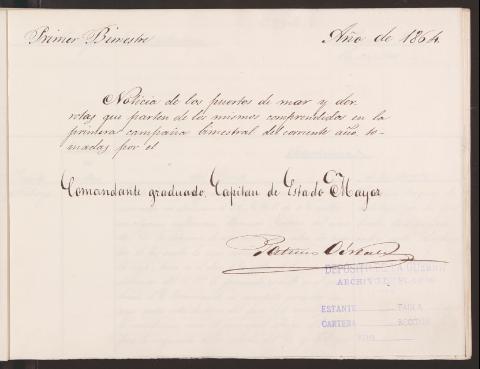 Primer Bimestre
Año de 1864.
Noticia de los puertos de mar y der
rotas que parten de los mismos comprendidos en la
primera campaña bimestral del corriente año, to-
madas por el
Comandante graduado, Capitan de Estado Mayor
DEPOSITO DE LA GUERRA
ARCHIVO DE PLANOS
ESTANTE TABLA
CARTERA